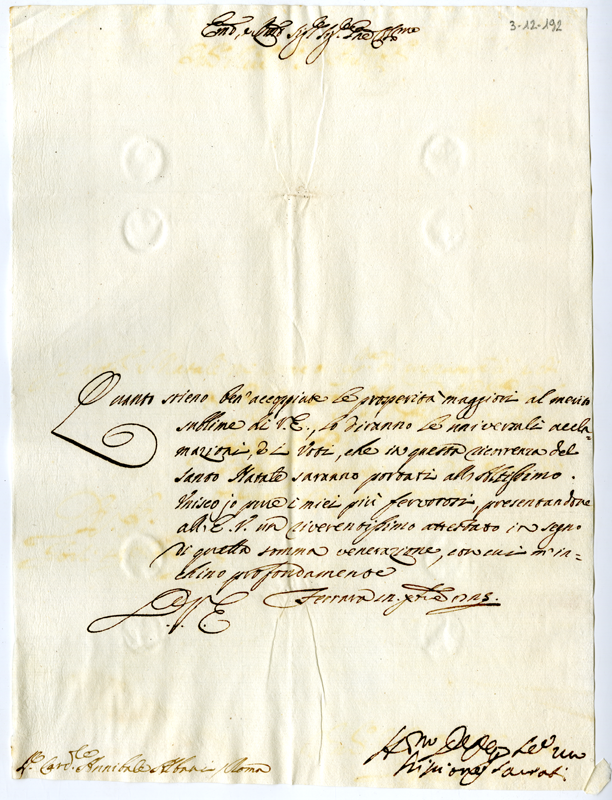 3-12-192
Quanto stieno ben'accoppiate le prosperità maggiori al merito
sublime di V.E., lo diranno le universali accla=
mazioni, è i Voti, che in questa ricorrenza del
santo Natale saranno portati all'Altissimo.
Unisco io pure i miei più fervorosi, presentandone
all'E.V. un riverentissimo attestato in segno
di quella somma venerazione, con cui m'in=
chino profondamente
D.V.E. Ferrara in
Card. Annibale Albani Roma